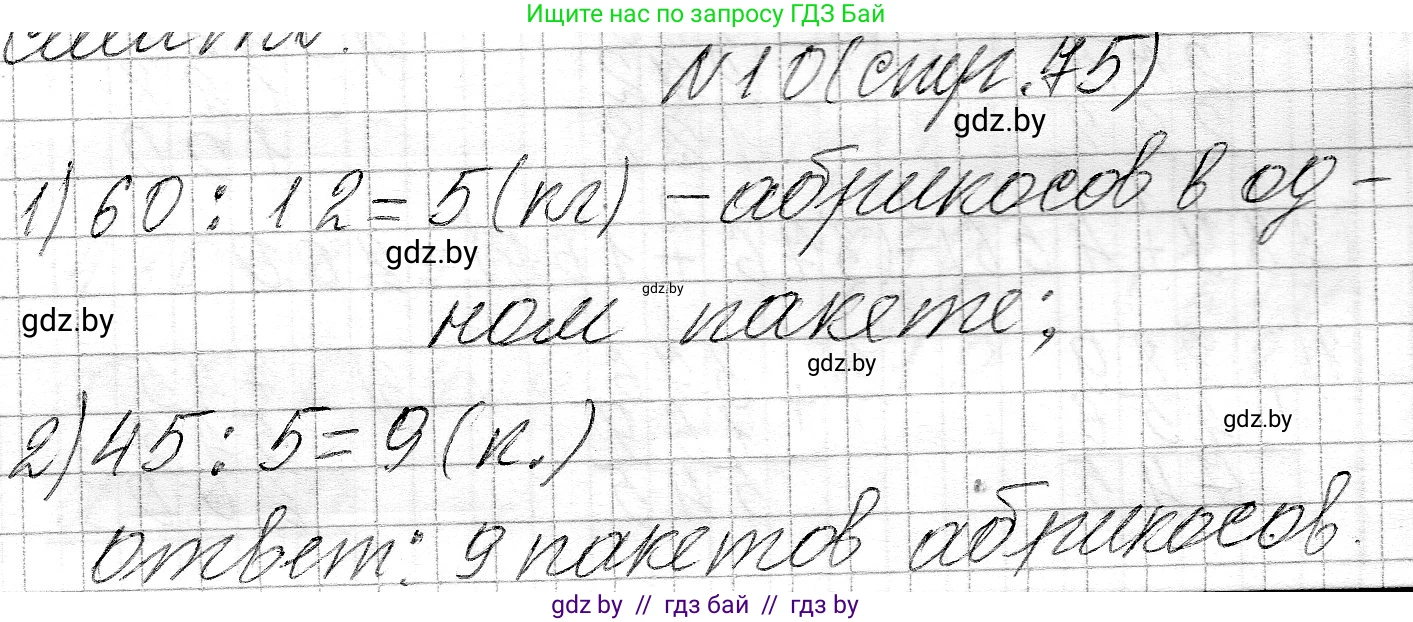 Ищите нас по запросу ГДЗ Бай
N10(стр.75)
gdz.by
1) 60 : 12 = 5 (кг) - абрикосов в од-
gdz.by
gdz.by
gdz.by
ном пакете;
gdz.by
2) 45 : 5 = 9 (к.)
gdz.by
ответ: 9 пакетов абрикосов.
gdz.by // гдз бай // гдз by